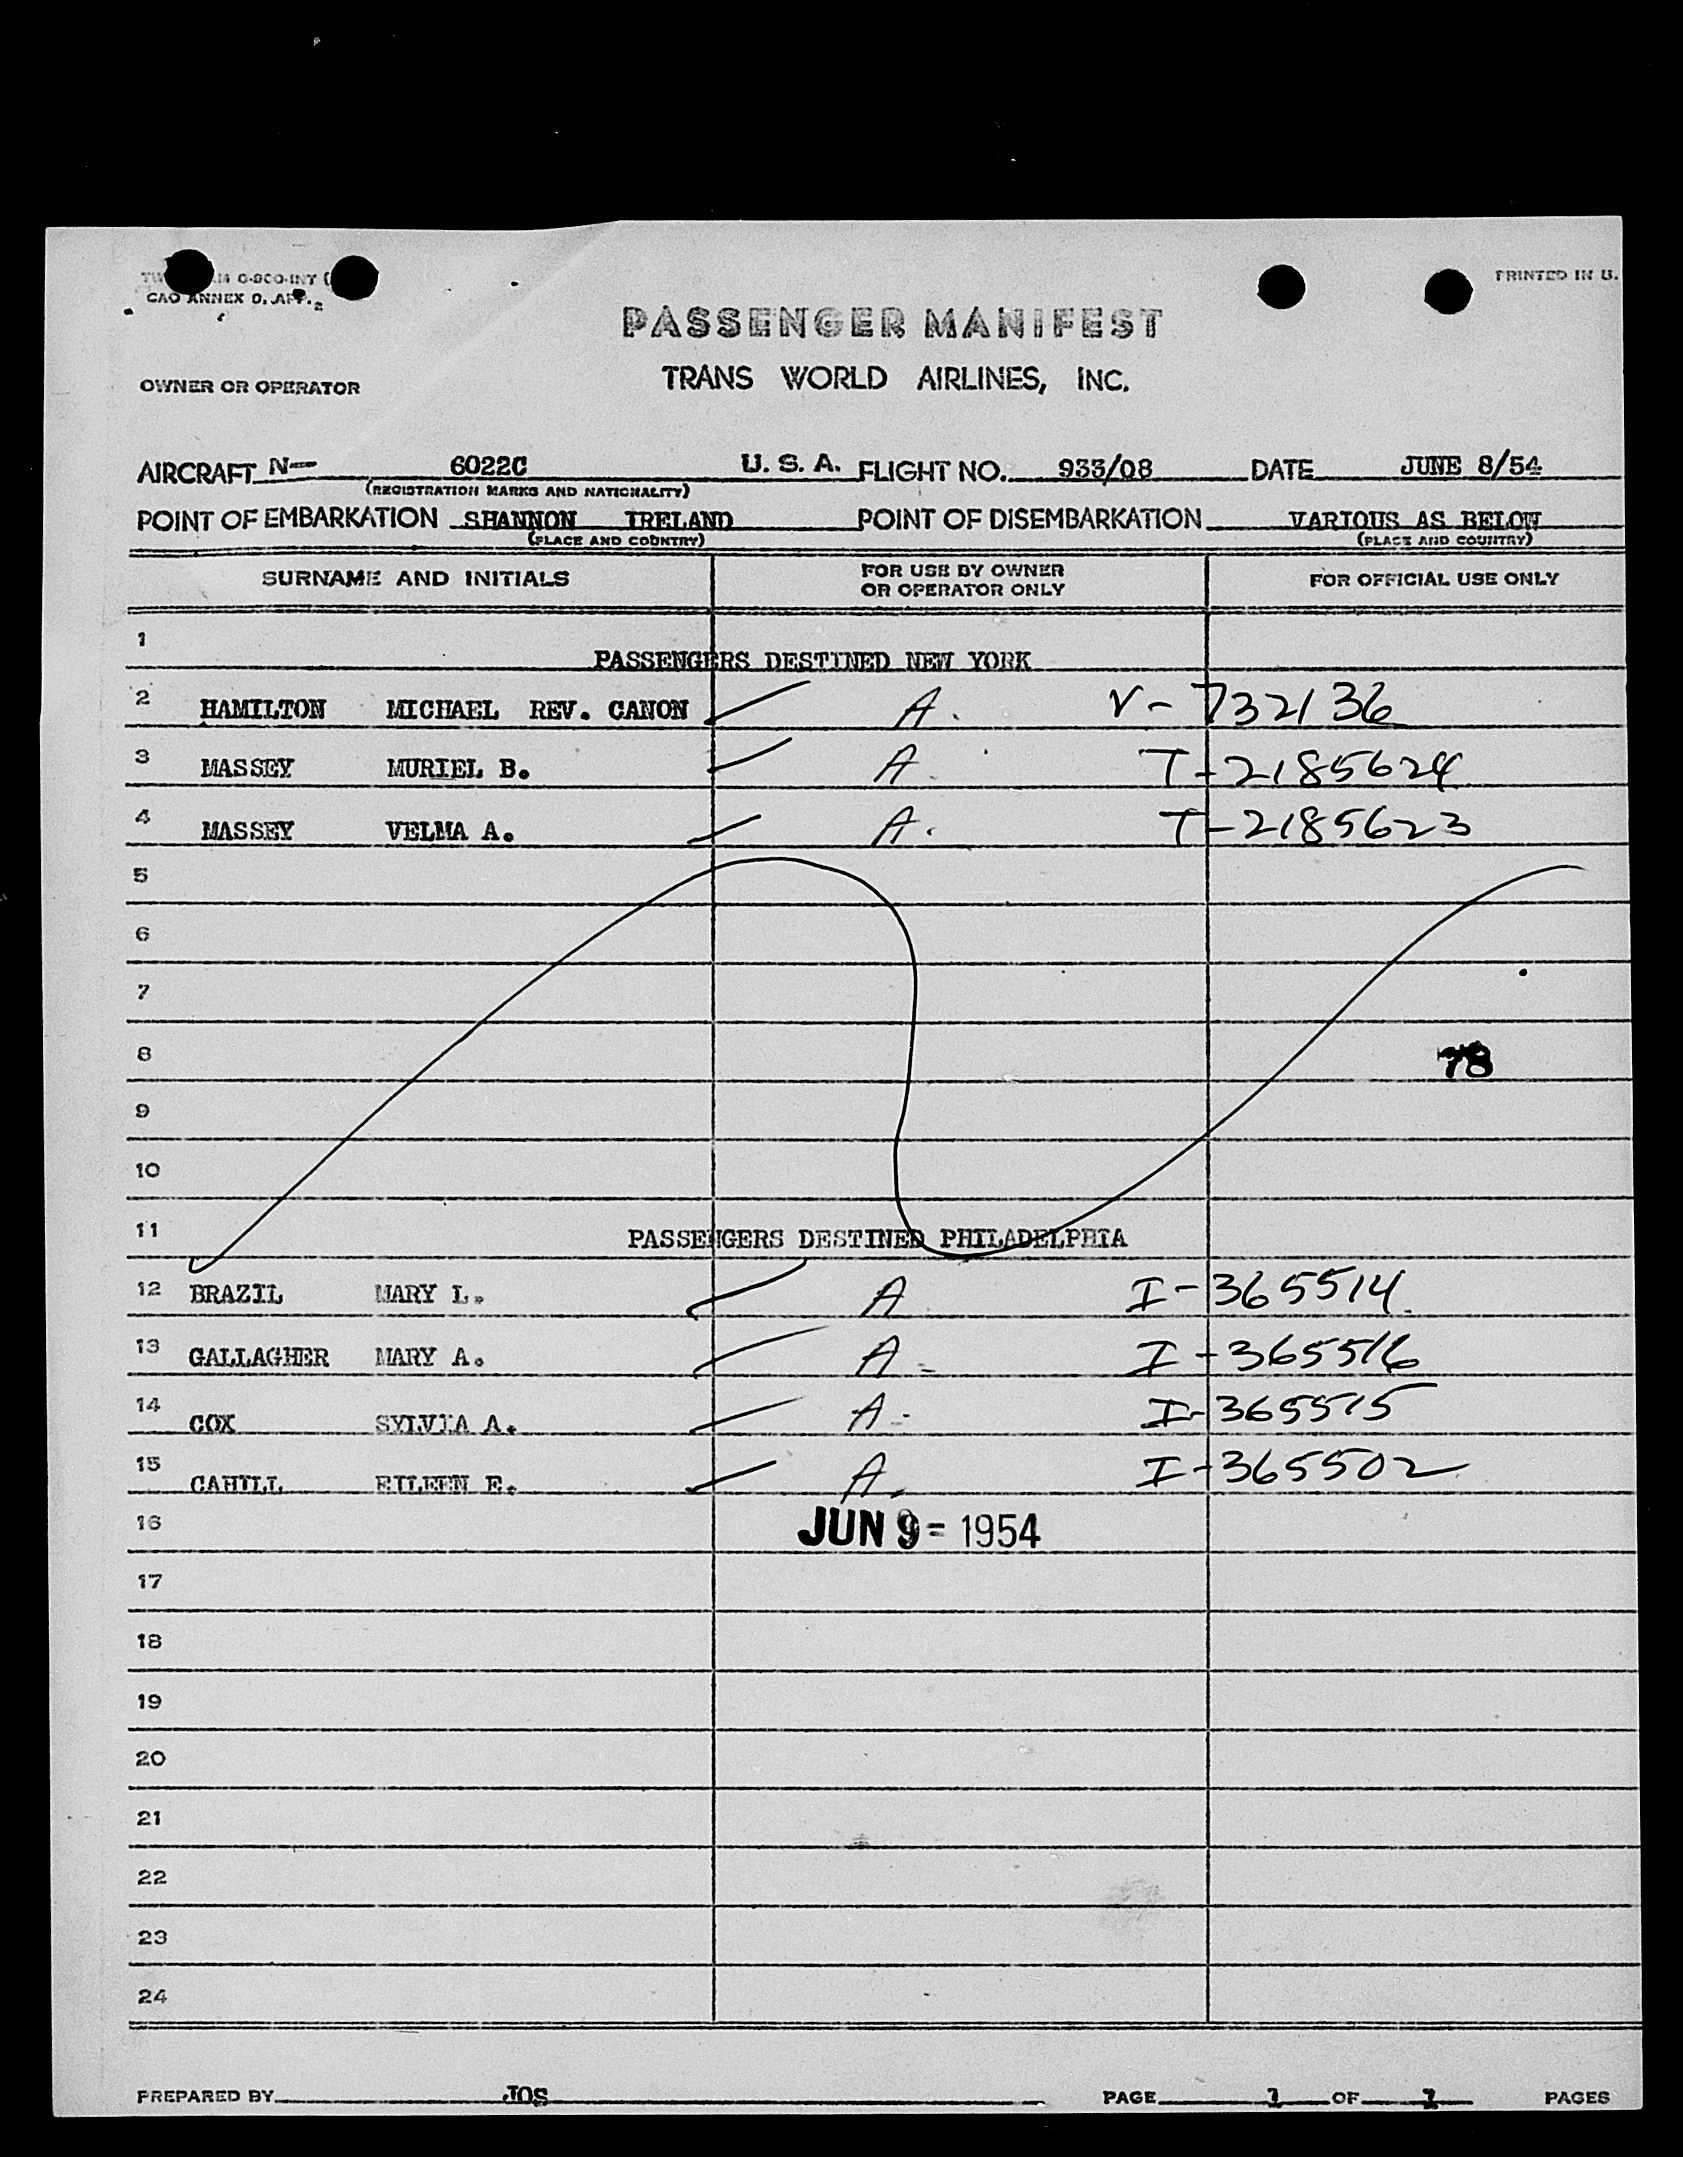 CAO ANNEX 9, APP. 2
PRINTED IN U.
PASSENGER MANIFEST
OWNER OR OPERATOR TRANS WORLD AIRLINES, INC.
AIRCRAFT N- 6022C U. S. A. FLIGHT NO. 933/08 DATE JUNE 8/54
(REGISTRATION MARKS AND NATIONALITY)
POINT OF EMBARKATION SHANNON IRELAND POINT OF DISEMBARKATION VARIOUS AS BELOW
(PLACE AND COUNTRY) (PLACE AND COUNTRY)
SURNAME AND INITIALS FOR USE BY OWNER OR OPERATOR ONLY FOR OFFICIAL USE ONLY
1 PASSENGERS DESTINED NEW YORK
2 HAMILTON MICHAEL REV. CANON A. V-732136
3 MASSEY MURIEL B. A. T-2185624
4 MASSEY VELMA A. A. T-2185623
5
6
7
8 78
9
10
11 PASSENGERS DESTINED PHILADELPHIA
12 BRAZIL MARY L. A I-365514
13 GALLAGHER MARY A. A- I-365516
14 COX SYLVIA A. A- I-365515
15 CAHILL EILEEN E. A. I-365502
16 JUN 9- 1954
17
18
19
20
21
22
23
24
PREPARED BY JOS PAGE 1 OF 1 PAGES